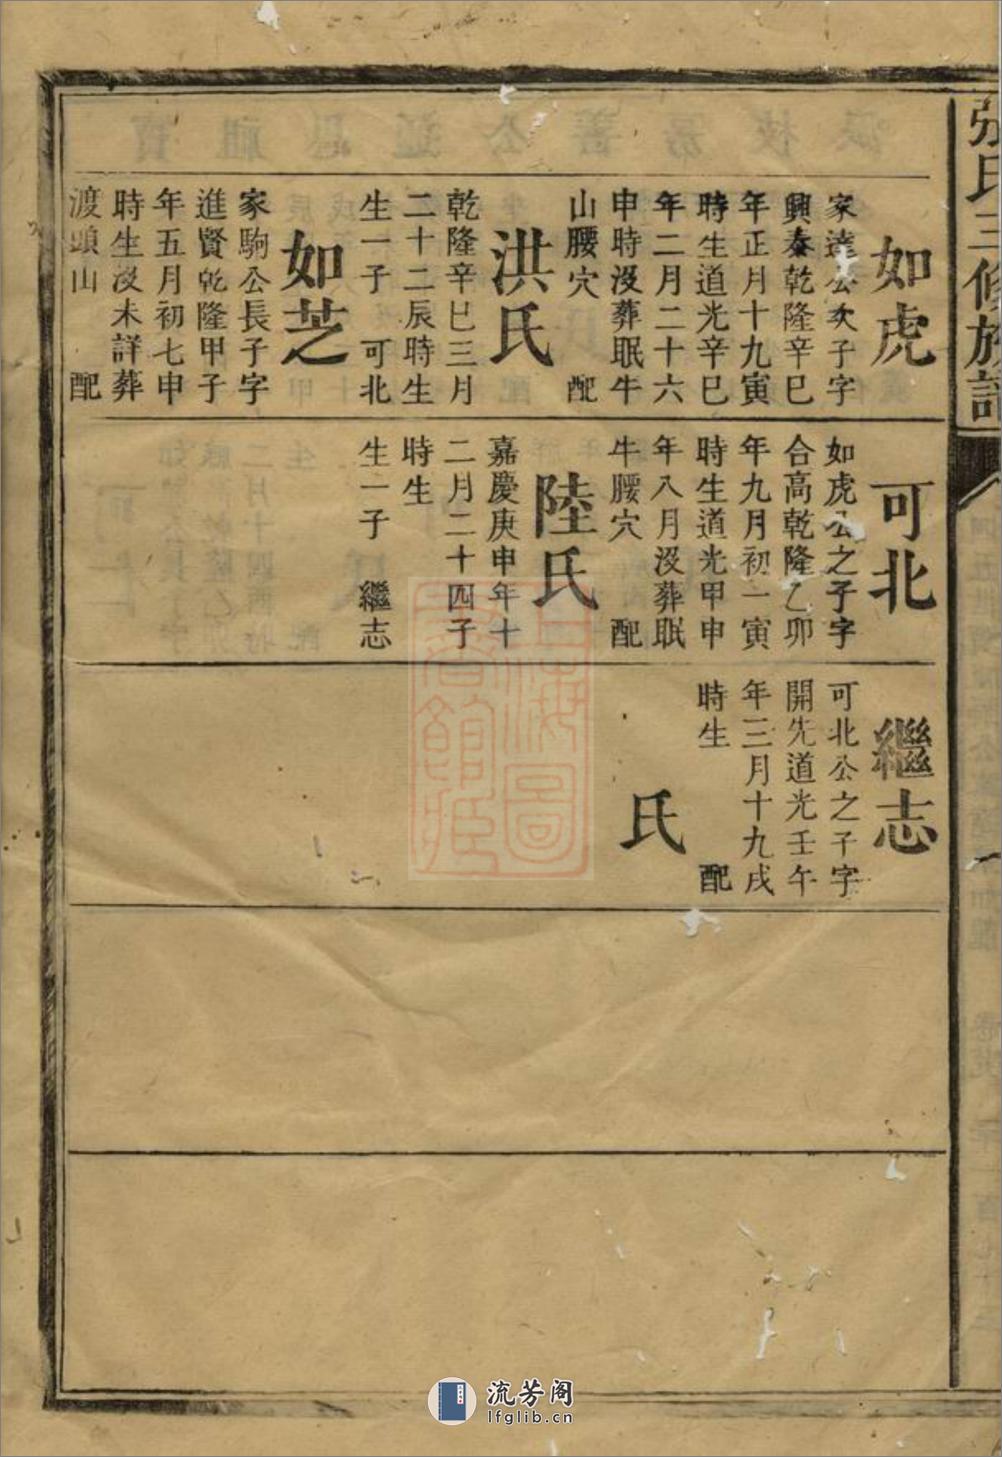 張氏三修族譜
如虎
家達公次子字
興泰乾隆辛巳
年正月十九寅
時生道光辛巳
年二月二十六
申時沒葬眠牛
山腰穴 配
洪氏
乾隆辛巳三月
二十二辰時生
生一子 可北
如芝
家駒公長子字
進賢乾隆甲子
年五月初七申
時生沒未詳葬
渡頭山 配
可北
如虎公之子字
合高乾隆乙卯
年九月初一寅
時生道光甲申
年八月沒葬眠
牛腰穴 配
陸氏
嘉慶庚申年十
二月二十四子
時生
生一子 繼志
繼志
可北公之子字
開先道光壬午
年三月十九戌
時生 配
氏
流芳阁
lfglib.cn